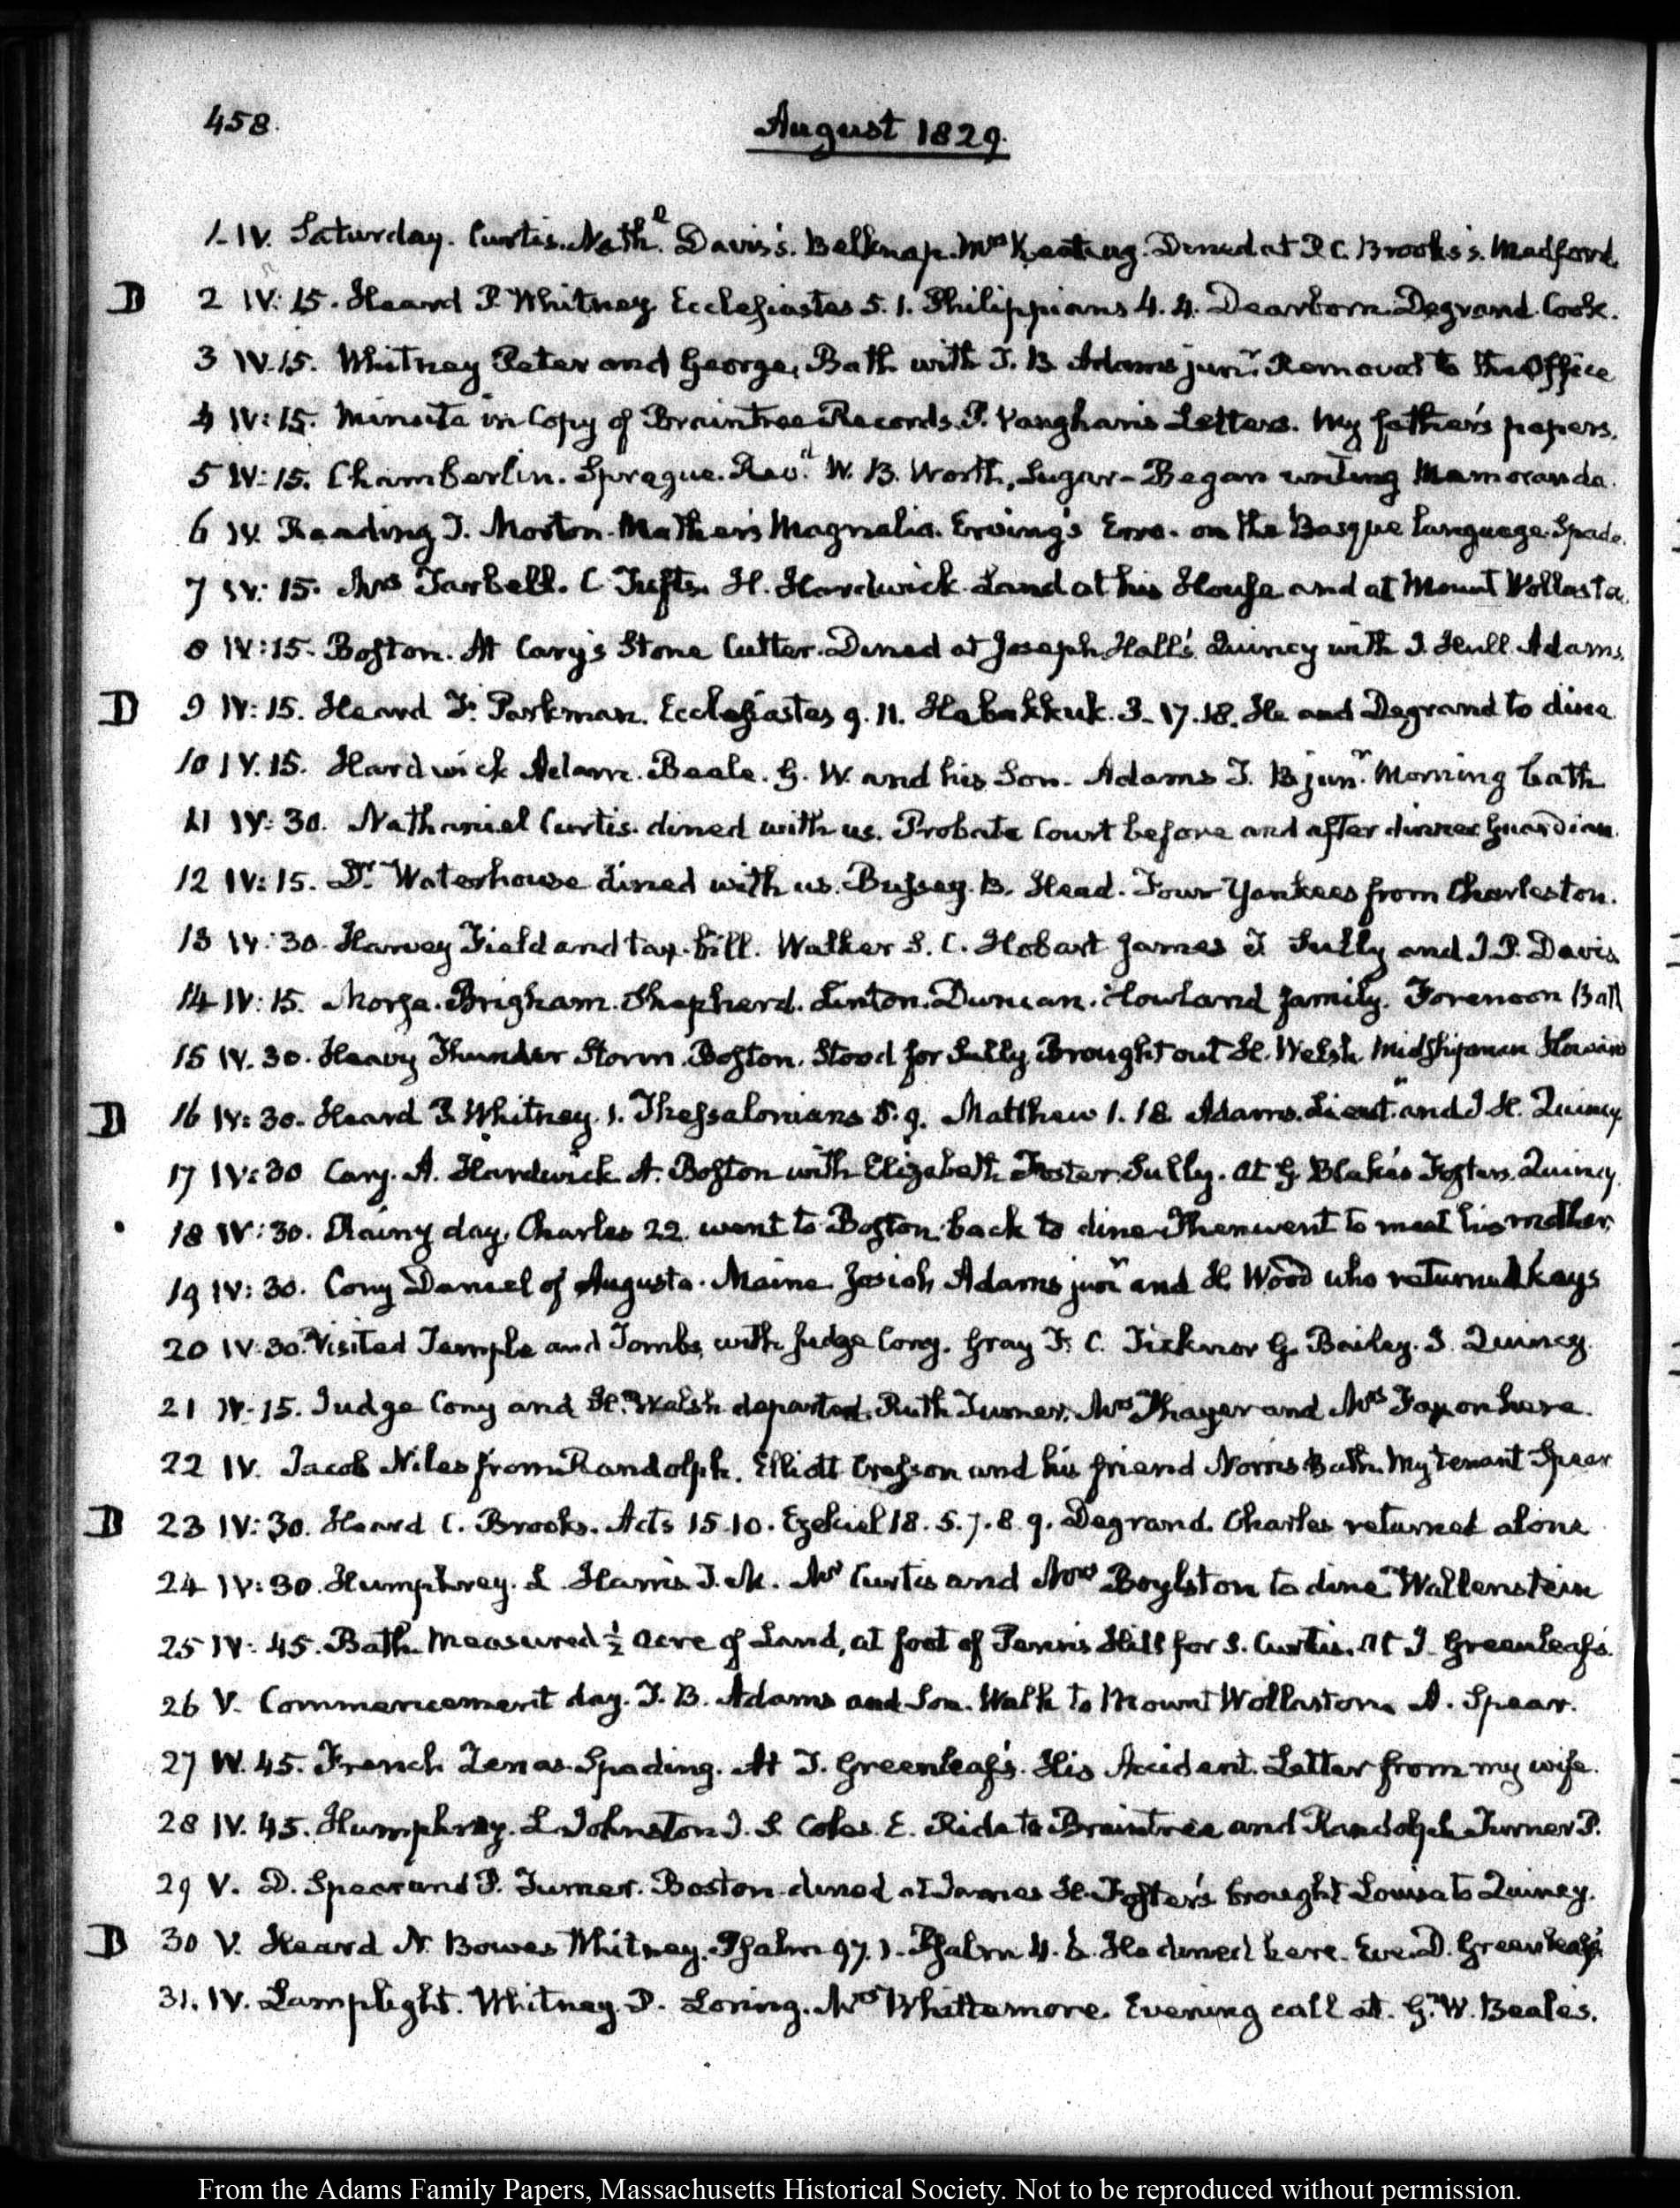 458.
August 1829.
1. IV. Saturday. Curtis. Nath.l Davis's. Belknap. Mrs Keating. Dined at P. C. Brooks's. Medford.
D 2 IV: 15. Heard P. Whitney. Ecclesiastes 5. 1. Philippians 4. 4. Dearborn. Degrand. Cook.
3 IV. 15. Whitney Peter and George. Bath with T. B. Adams junr. Removal to the Office
4 IV: 15. Minute in Copy of Braintree Records. P. Vaughan's Letters. My father's papers.
5 IV: 15. Chamberlin. Sprague. Revd. W. B. Worth, Sugar- Began writing Memoranda.
6 IV. Reading T. Morton. Mather's Magnalia. Erving's on the Basque language. Spade.
7 IV: 15. Mrs Tarbell. C Tufts. H. Hardwick. Land at his House and at Mount Wollasta.
8 IV: 15. Boston. At Cary's Stone Cutter. Dined at Joseph Hall's. Quincy with I. Hull Adams.
D 9 IV: 15. Heard F. Parkman. Ecclesiastes 9. 11. Habakkuk. 3. 17. 18. He and Degrand to dine
10 IV. 15. Hardwick Adam. Beale. G. W. and his Son. Adams T. B junr. Morning bath
11 IV: 30. Nathaniel Curtis dined with us. Probate Court before and after dinner Guardian.
12 IV: 15. Dr. Waterhouse dined with us. Bussey. B. Head. Four Yankees from Charleston.
13 IV: 30. Harvey Field and tax-bill. Walker S. C. Hobart James T Sully and I. P. Davis
14 IV: 15. Morse. Brigham. Shepherd. Linton. Duncan. Howland family. Forenoon Bath
15 IV. 30. Heavy Thunder Storm. Boston. Stood for Sully. Brought out H. Welsh. Midshipman
D 16 IV: 30. Heard P. Whitney. 1. Thessalonians 5. 9. Matthew 1. 18. Adams. Lieut. and I H. Quincy
17 IV: 30 Cary. A. Hardwick A. Boston with Elizabeth Foster. Sully. At G. Blake's Foster's. Quincy.
18 IV: 30. Rainy day. Charles 22. went to Boston. back to dine. Then went to meet his mother.
19 IV: 30. Cony Daniel of Augusta. Maine. Josiah Adams junr and H. Wood who returned keys
20 IV: 30. Visited Temple and Tombs with Judge Cony. Gray F. C. Ticknor G. Bailey. J. Quincy.
21 IV. 15. Judge Cony and H. Welsh departed. Ruth Turner, Mrs Thayer and Mrs Faxon here.
22 IV. Jacob Niles from Randolph. Elliott Cresson and his friend Norris. Bath. My tenant Spear
D 23 IV: 30. Heard C. Brooks. Acts 15. 10. Ezekiel 18. 5. 7. 8. 9. Degrand. Charles returned alone.
24 IV: 30. Humphrey. L. Harris T. M. Mr Curtis and Mrs Boylston to dine. Wallenstein
25 IV: 45. Bath. Measured ½ acre of Land, at foot of Penn's Hill for S. Curtis. At T. Greenleaf's.
26 V. Commencement day. T. B. Adams and Son. Walk to Mount Wollaston. A. Spear.
27 IV. 45. French Zenas. Spading. At T. Greenleaf's. His Accident. Letter from my wife.
28 IV. 45. Humphrey. L Johnston J. S. Coles. E. Ride to Braintree and Randolph. Turner P.
29 V. D. Spear and P. Turner. Boston. dined at James H. Foster's brought Louisa to Quincy.
D 30 V. Heard N. Bowes Whitney. Psalm 97. 1. Psalm 4. 6. He dined here. Eve. D. Greenleaf's
31. IV. Lamplight. Whitney. P. Loring. Mrs Whittemore. Evening call at G. W. Beale's.
From the Adams Family Papers, Massachusetts Historical Society. Not to be reproduced without permission.